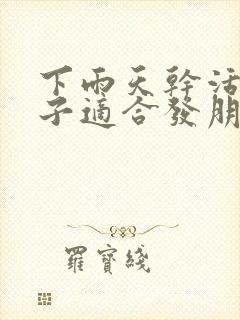 下雨天幹活
子適合發朋
羅寶綫